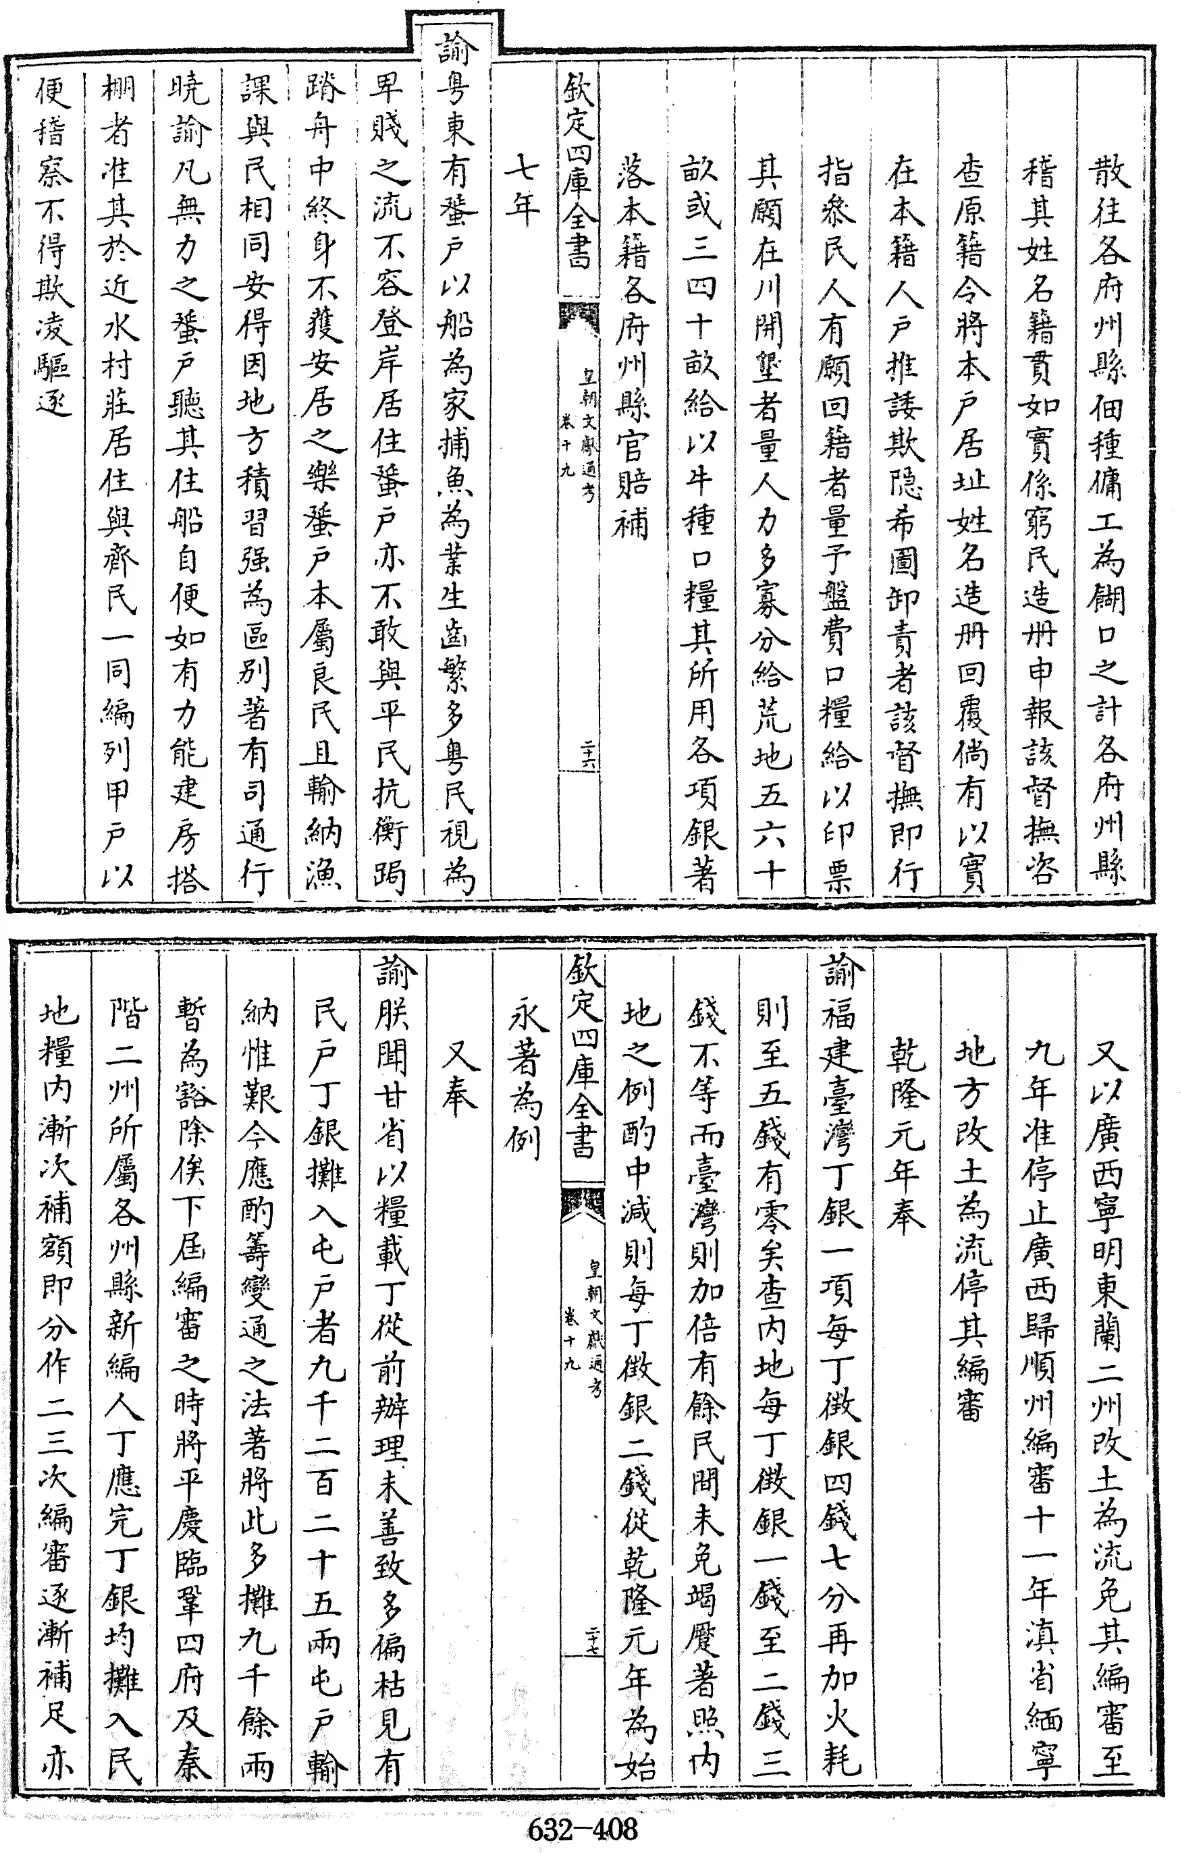 散往各府州縣佃種傭工為餬口之計各府州縣
稽其姓名籍貫如實係窮民造册申報該督撫咨
查原籍令將本户居址姓名造册回覆倘有以實
在本籍人户推諉欺隐希圖卸責者該督撫即行
指叅民人有願回籍者量予盤費口糧給以印票
其願在川開墾者量人力多寡分給荒地五六十
畝或三四十畝給以牛種口糧其所用各項銀著
落本籍各府州縣官賠補
欽定四庫全書
皇朝文獻通考
卷十九
二十六
七年
諭粤東有蜑户以船為家捕魚為業生齒繁多粤民視為
卑賤之流不容登岸居住蜑户亦不敢與平民抗衡跼
蹐舟中終身不獲安居之樂蜑户本屬良民且輸納漁
課與民相同安得因地方積習强為區别著有司通行
曉諭凡無力之蜑户聽其住船自便如有力能建房搭
棚者准其於近水村莊居住與齊民一同編列甲户以
便稽察不得欺凌驅逐
又以廣西寧明東蘭二州改土為流免其編審至
九年准停止廣西歸順州編審十一年滇省緬寧
地方改土為流停其編審
乾隆元年奉
諭福建臺灣丁銀一項每丁徴銀四錢七分再加火耗
則至五錢有零矣查内地每丁徴銀一錢至二錢三
錢不等而臺灣則加倍有餘民間未免竭蹷著照内
地之例酌中减則每丁徴銀二錢從乾隆元年為始
欽定四庫全書
皇朝文獻通考
卷十九
二十七
永著為例
又奉
諭朕聞甘省以糧載丁從前辦理未善致多偏枯見有
民户丁銀攤入屯户者九千二百二十五兩屯户輸
納惟艱今應酌籌變通之法著將此多攤九千餘兩
暫為豁除俟下屆編審之時將平慶臨鞏四府及秦
階二州所屬各州縣新編人丁應完丁銀均攤入民
地糧内漸次補額即分作二三次編審逐漸補足亦
632-408